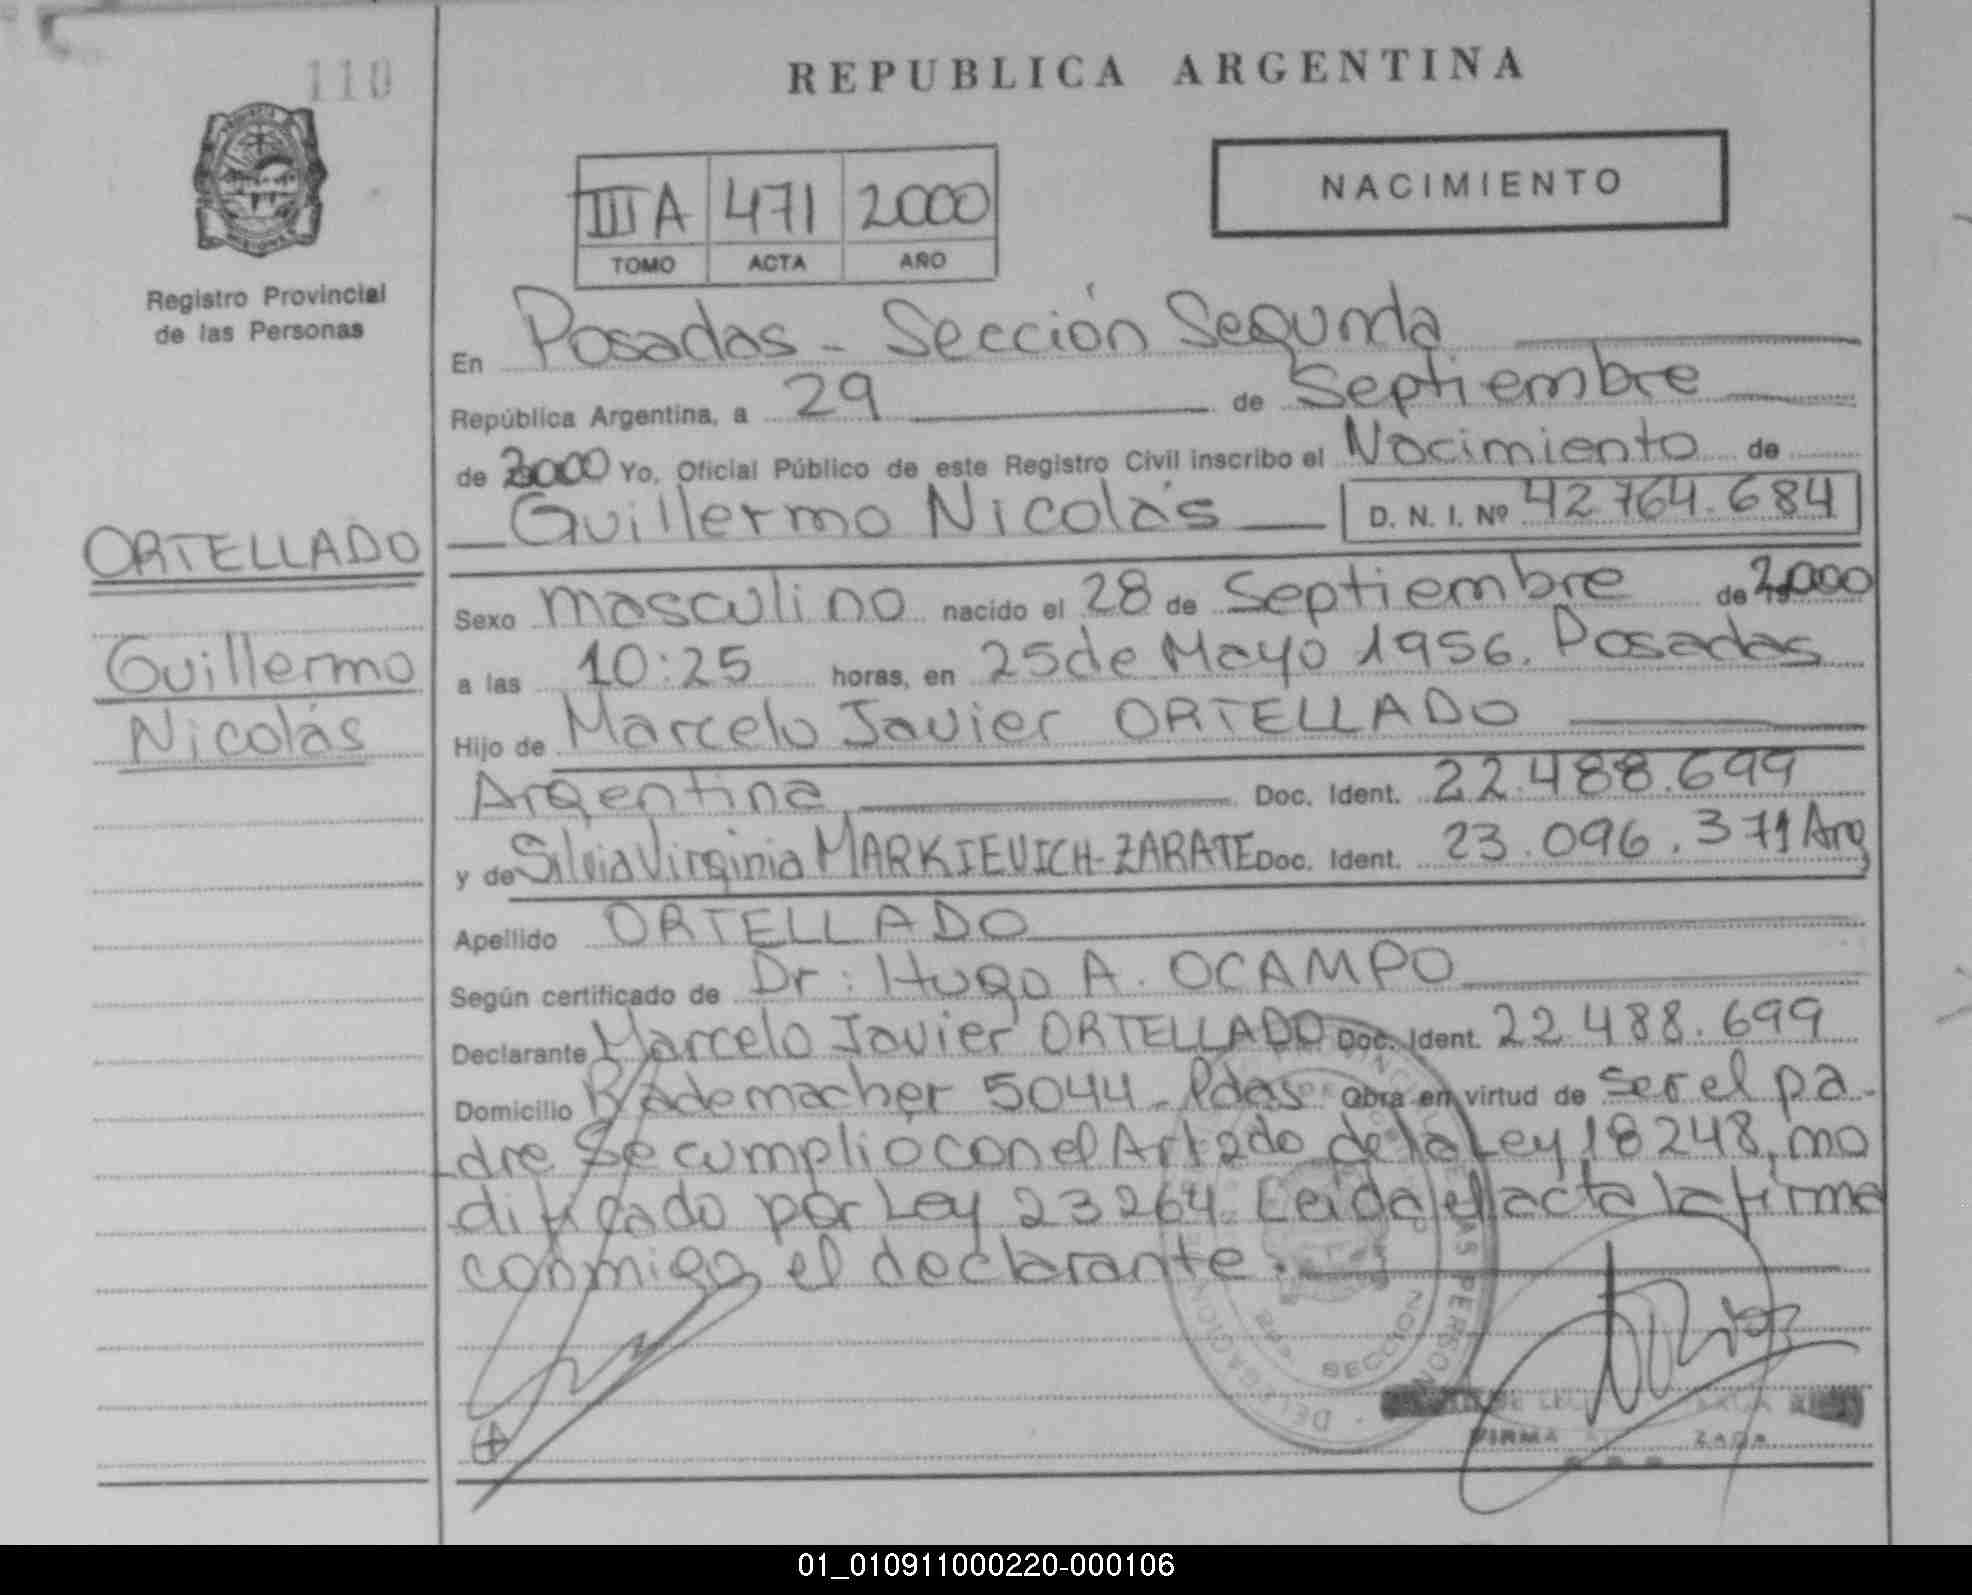 110
REPUBLICA ARGENTINA
NACIMIENTO
III A 471 2000
TOMO ACTA AÑO
Registro Provincial
de las Personas
En Posadas - Sección Segunda
República Argentina, a 29 de Septiembre
de 2000 Yo, Oficial Público de este Registro Civil inscribo el Nacimiento de
Guillermo Nicolás D. N. I. Nº 42764.684
ORTELLADO
Guillermo
Nicolás
Sexo masculino nacido el 28 de Septiembre de 2000
a las 10:25 horas, en 25 de Mayo 1956. Posadas
Hijo de Marcelo Javier ORTELLADO
Argentina Doc. Ident. 22.488.699
y de Silvia Virginia MARKIEVICH-ZARATE Doc. Ident. 23.096.371 Arg
Apellido ORTELLADO
Según certificado de Dr: Hugo A. OCAMPO
Declarante Marcelo Javier ORTELLADO Doc. Ident. 22.488.699
Domicilio Rademacher 5044 - Pdas Obra en virtud de ser el pa-
dre Se cumplio con el Art 2do de la Ley 18248, mo
dificado por Ley 23264. Leida el acta la firma
conmigo el declarante.
SECCION
FIRMA
01_010911000220-000106